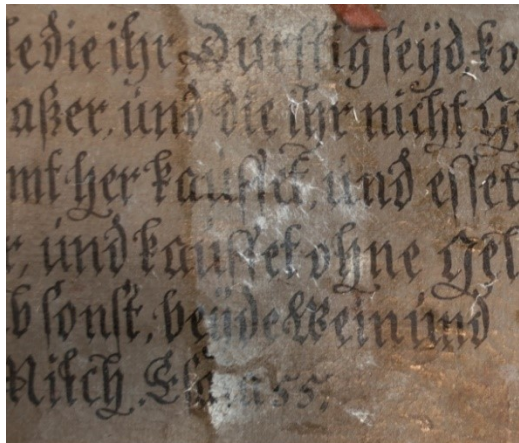 le die ihr Dürstig seÿd ko
aßer, und die ihr nicht Ge
mt her kauffet, und esset
r, und kauffet ohne Gel
b sonst, beÿde Wein und
Milch. Esa: 55.